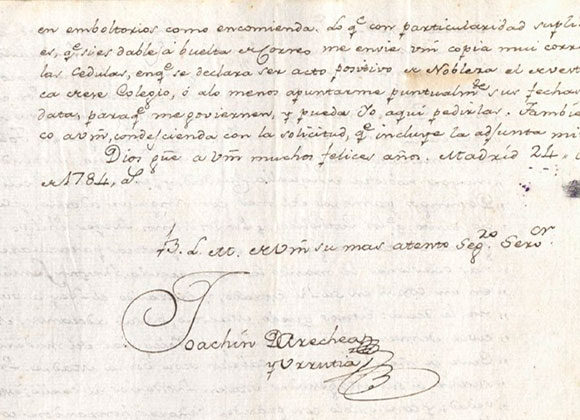 en emboltorios como encomienda. Lo q.e con particularidad supli
es, q.e si es dable á buelta de Correo me envie Vm̃ copia mui corr
las Cedulas, en q.e se declara ser acto posivivo de Nobleza el vest
ca de ese Colegio, ó alo menos apuntarme puntualm.te sus fechas
data, para q.e me goviernen, y pueda Yo, aqui pedirlas. Tambie
co a Vm̃, condescienda con la solicitud, q.e incluye la adjunta mi
Dios gũe a Vm̃ muchos felices años. Madrid 24
de 1784, a.s
B. L. M. de Vm̃ su mas atento Seg.ro Ser.or
Joachin de Arechea
y Urrutia